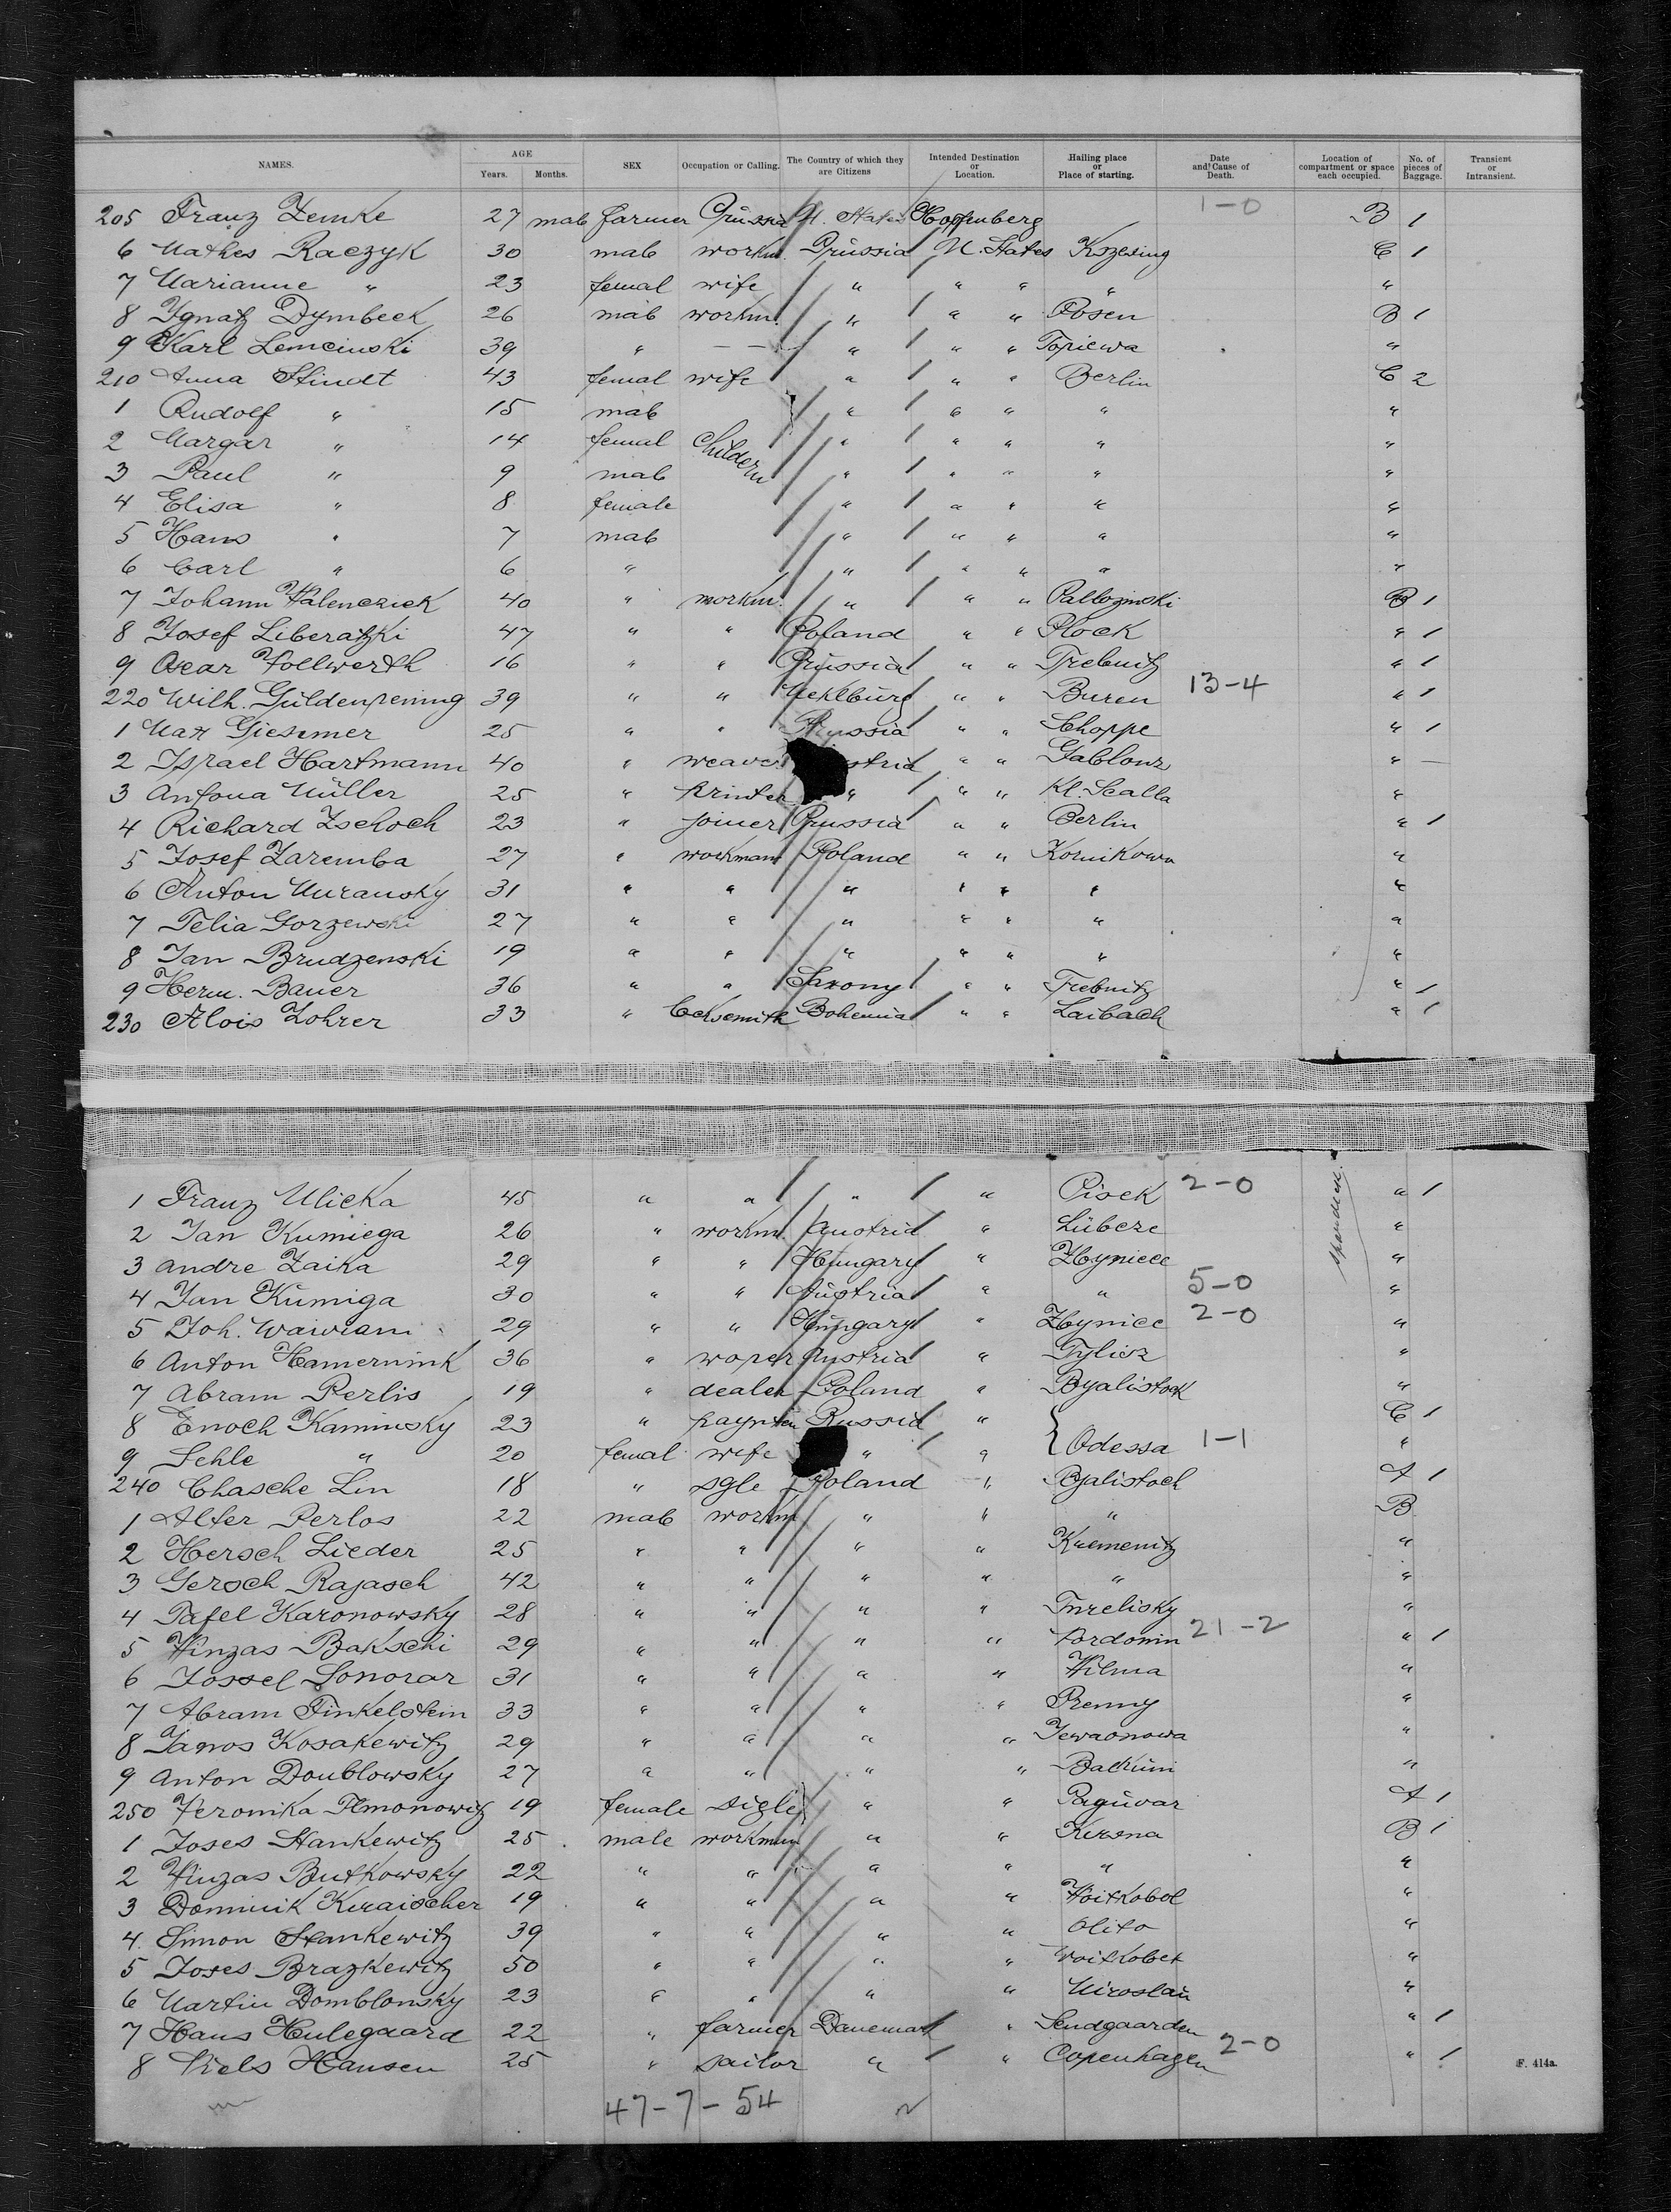 NAMES. AGE Years. Months. SEX Occupation or Calling. The Country of which they are Citizens Intended Destination or Location. Hailing place or Place of starting. Date and Cause of Death. Location of compartment or space each occupied. No. of pieces of Baggage. Transient or Intransient.
1-0
205 Franz Zemke 27 male farmer Prussia U. States B 1
6 Mathes Raczyk 30 male workm. Prussia U. States Krzesing C 1
7 Marianne " 23 femal wife " " " " "
8 Ignatz Dymbeck 26 male workm. " " " Posen B 1
9 Karl Lemcinski 39 " — — " " " Topiewa "
210 Anna Stindt 43 femal wife " " " Berlin C 2
1 Rudolf " 15 male " " " " "
2 Margar " 14 femal Childern " " " " "
3 Paul " 9 male " " " " "
4 Elisa " 8 female " " " " "
5 Hans " 7 male " " " " "
6 Carl " 6 " " " " " "
7 Johann Walenczick 40 " workm. " " " B 1
8 Josef Liberatzki 47 " " Poland " " Plock " 1
9 Oscar Vollwerth 16 " " Prussia " " Trebnitz " 1
220 Wilh. Güldenpening 39 " " Meklburg " " Buren 13-4 " 1
1 Max Giesemer 25 " " Prussia " " Choppe " 1
2 Israel Hartmann 40 " weaver stria " " Gablonz " —
3 Antona Müller 25 " printer " " " Kl. Scalla "
4 Richard Zschoch 23 " joiner Prussia " " Berlin " 1
5 Josef Zaremba 27 " workmann Poland " " Kornikowa "
6 Anton Muransky 31 " " " " " " "
7 Telia Gorzewski 27 " " " " " " "
8 Jan Brudzenski 19 " " " " " " "
9 Herm. Bauer 36 " " Saxony " " Trebnitz " 1
230 Alois Zohrer 33 " Bohemia " " Laibach " 1
1 Franz Ulicka 45 " " " " Pisek 2-0 " 1
2 Jan Kumiega 26 " workm. Austria " Lübcze "
3 Andre Zaika 29 " " Hungary " "
4 Jan Kumiga 30 " " Austria " " 5-0 "
5 Joh. Waiwrani 29 " " Hungary " 2-0 "
6 Anton Hamernink 36 " woper Austria " Tylicz "
7 Abram Perlis 19 " dealer Poland " Byalistock "
8 Enoch Kaminsky 23 " paynter Russia " C 1
9 Sehle " 20 femal wife " " Odessa 1-1 "
240 Chasche Lin 18 " sgle Poland " Byalistoch A 1
1 Alter Perlos 22 male workm " " " B
2 Hersch Lieder 25 " " " " Kremenitz "
3 Gersch Rajasch 42 " " " " " "
4 Tafel Karonowsky 28 " " " " Turelisky "
5 Winzas Bakschi 29 " " " " Pordonin 21-2 " 1
6 Jossel Sonorar 31 " " " " Wilma "
7 Abram Finkelstein 33 " " " " Prenny "
8 Janos Kosakewitz 29 " " " " Jewaonowa "
9 Anton Doublowsky 27 " " " " Backumi "
250 Veronika Plmonowitz 19 female sigle " " Paguvar A 1
1 Joses Stankewitz 25 male workman " " Kirsna B 1
2 Winzas Butkowsky 22 " " " " " "
3 Dominik Kwaischer 19 " " " " Woitkobol "
4 Simon Stankewitz 39 " " " " Olita "
5 Joses Brazkewitz 50 " " " " Woitkobel "
6 Martin Domblonsky 23 " " " " Miroslau "
7 Hans Hulegaard 22 " farmer Danemark " Sendgaarden " 1
8 Niels Hansen 25 " sailor " " Copenhagen 2-0 " 1
F. 414a.
47-7-54